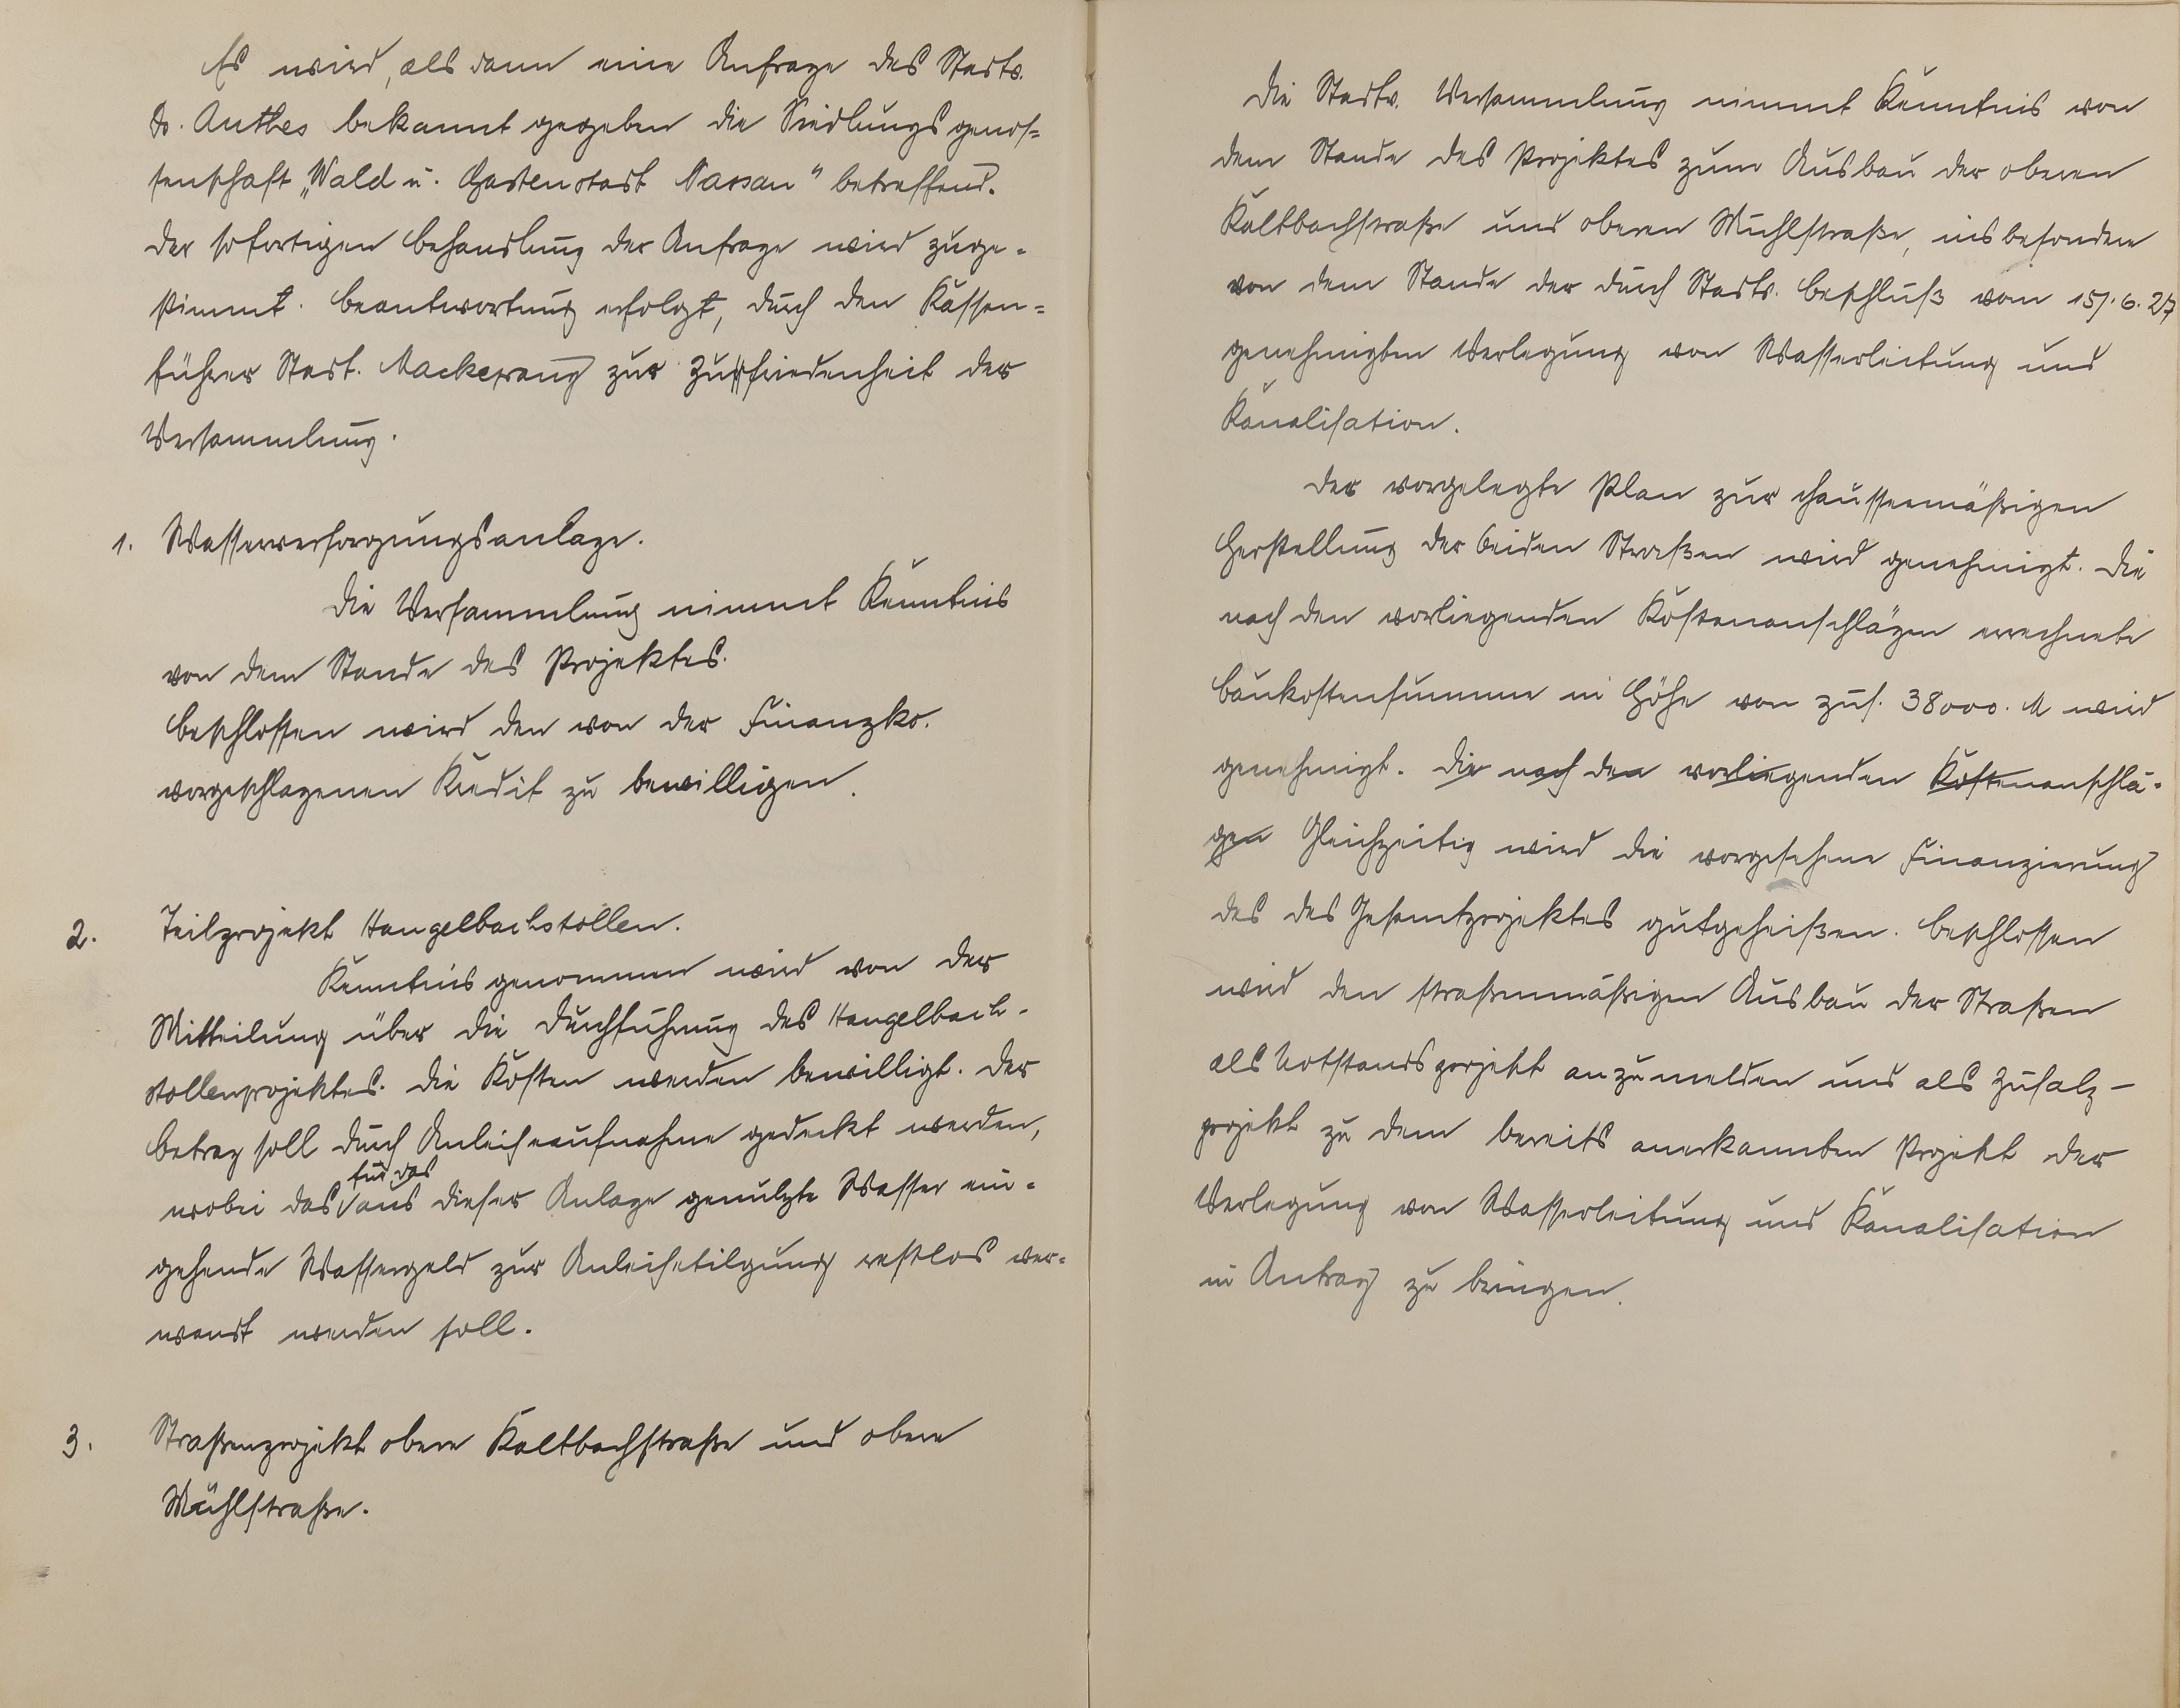 Es wird, als dann eine Anfrage des Stadtv.
Dr. Anthes bekannt gegeben die Siedlungsgenos=
senschaft „Wald u. Gartenstadt Nassau" betreffend.
Der sofortigen Behandlung der Anfrage wird zuge=
stimmt. Beantwortung erfolgt, durch den Kassen=
führer Stadt. Mackeprang zur Zufriedenheit der
Versammlung.
1. Wasserversorgungsanlage.
Die Versammlung nimmt Kenntnis
von dem Stande des Projektes.
Beschlossen wird den von der Finanzko.
vorgeschlagenen Kredit zu bewilligen.
2. Teilprojekt Hangelbachstollen.
Kenntnis genommen wird von der
Mitteilung über die Durchführung des Hangelbach-
stollenprojektes. Die Kosten werden bewilligt. Der
Betrag soll durch Anleiheaufnahme gedeckt werden,
für das
wobei das aus dieser Anlage genutzte Wasser ein=
gehende Wassergeld zur Anleihetilgung restlos ver=
wandt werden soll.
3. Straßenprojekt obere Kaltbachstraße und obere
Mühlstraße.
Die Stadtv. Versammlung nimmt Kenntnis von
dem Stande des Projektes zum Ausbau der oberen
Kaltbachstraße und oberen Mühlstraße, insbesondere
von dem Stande der durch Stadtv. Beschluß vom 15.6.27
genehmigten Verlegung von Wasserleitung und
Kanalisation.
Der vorgelegte Plan zur chausseemäßigen
Herstellung der beiden Straßen wird genehmigt. Die
nach den vorliegenden Kostenanschlägen errechnete
Baukostensumme in Höhe von zus. 38000. M wird
genehmigt. Die nach den vorliegenden Kostenanschlä-
gen Gleichzeitig wird die vorgesehene Finanzierung
des des Gesamtprojektes gutgeheißen. Beschlossen
wird den straßenmäßigen Ausbau der Straßen
als Notstandsprojekt anzumelden und als Zusatz-
projekt zu dem bereits anerkannten Projekt der
Verlegung von Wasserleitung und Kanalisation
in Antrag zu bringen.